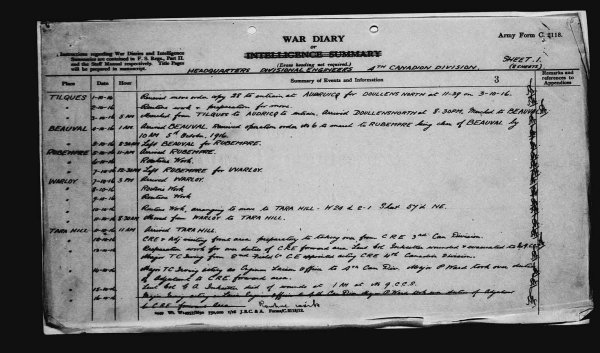 WAR DIARY
or
INTELLIGENCE SUMMARY
(Erase heading not required.)
Army Form C. 2118.
Instructions regarding War Diaries and Intelligence
Summaries are contained in F. S. Regs., Part II.
and the Staff Manual respectively. Title Pages
will be prepared in manuscript.
HEADQUARTERS DIVISIONAL ENGINEERS 4TH CANADIAN DIVISION.
SHEET. 1.
Place Date Hour Summary of Events and Information 3 Remarks and references to Appendices
TILQUES 1-10-16 Received move order copy 28 to entrain at AUDRUICQ for DOULLENS NORTH at 11-39 on 3-10-16.
" 2-10-16 Routine work & preparation for move.
" 3-10-16 5 AM Marched from TILQUES to AUDRUICQ to entrain. Arrived DOULLENS NORTH at 8.30PM. Marched to BEAUVAL
BEAUVAL 4-10-16 1 AM Arrived BEAUVAL. Received operation order No 6 to march to RUBEMPRE being clear of BEAUVAL by
10 AM 5th October, 1916.
" 5-10-16 8.30AM Left BEAUVAL for RUBEMPRE.
RUBEMPRE 5-10-16 Arrived RUBEMPRE.
" 6-10-16 Routine Work.
" 7-10-16 12.30PM Left RUBEMPRE for WARLOY.
WARLOY 7-10-16 3 PM Arrived WARLOY.
" 8-10-16 Routine Work
" 9-10-16 Routine Work
" 10-10-16 Routine Work, arranging to move to TARA HILL - Sheet 57d NE.
" 8.30AM Moved from WARLOY to TARA HILL.
TARA HILL 11 AM Arrived TARA HILL.
" CRE & Adj visiting forward area preparatory to taking over from C.R.E. 3rd Can Division.
" Preparatory work for our duties of CRE forward area Last Col. Inksetter wounded & evacuated to
Major TC Irving from 2nd Field Co CE appointed acting CRE 4th Canadian Division.
" 14-10-16 Major TC Irving acting as Engineer Liaison Officer to 4th Can Div. Major P Ward took over duties
of Adjutant to CRE forward area.
" 15-10-16 Lieut Col G.A. Inksetter died of wounds at 1 AM at No 9 C.C.S.
" 16-10-16 Routine work